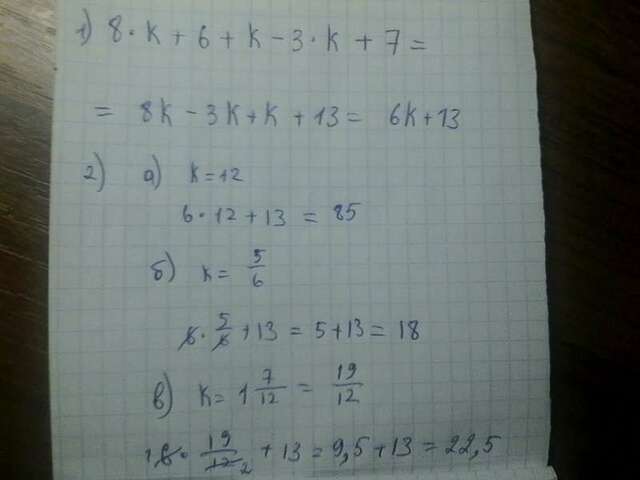 1) 8 · k + 6 + k - 3 · k + 7 =
= 8k - 3k + k + 13 = 6k + 13
2) а) k = 12
6 · 12 + 13 = 85
б) k = 5/6
6 · 5/6 + 13 = 5 + 13 = 18
в) k = 1 7/12 = 19/12
1 6 · 19/12 2 + 13 = 9,5 + 13 = 22,5